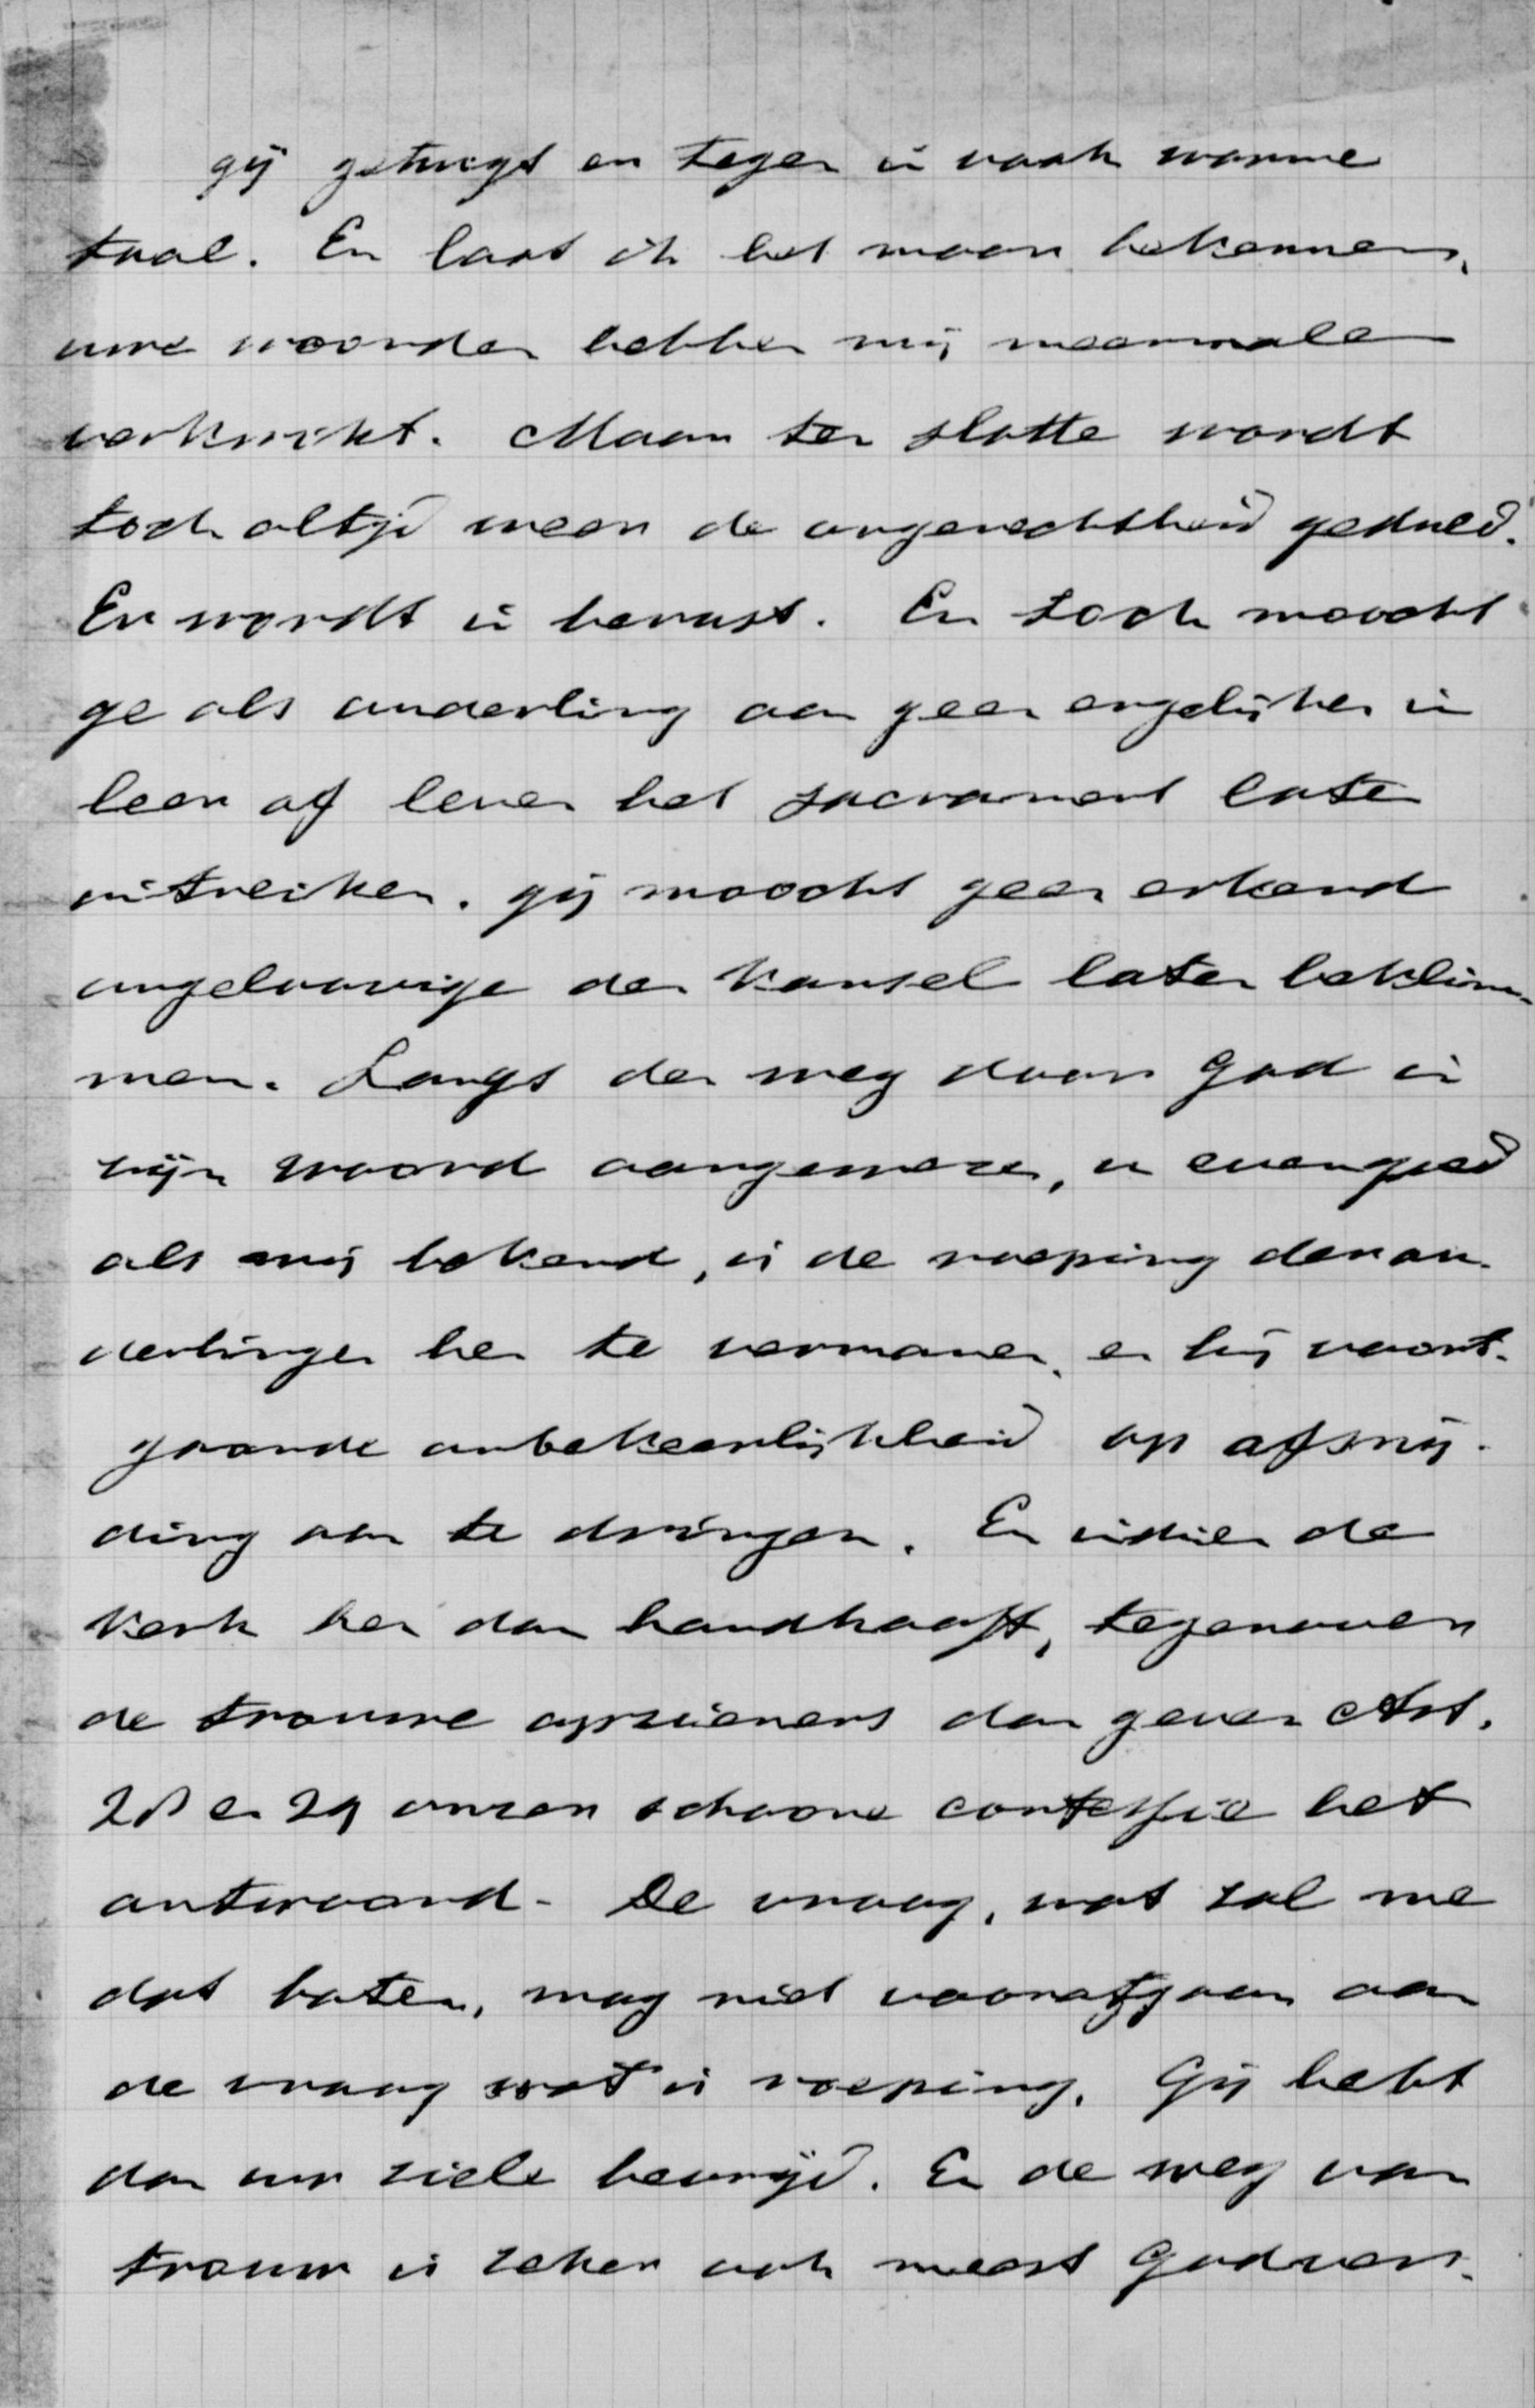 gij getuigt en tegen is vaak warme
taal. En laat ik het maar bekennen,
uwe woorden hebben mij meermalen
verkwikt. Maar ten slotte wordt
toch altijd weer de ongerechtheid geduld.
En wordt in berust. En toch moocht
ge als ouderling aan geen ergelijken in
leer of leven het sacrament laten
uitreiken. gij moocht geen erkend
ongeloovige den kansel laten beklim-
men. Langs den weg door God in
zijn woord aangewezen, u evengoed
als mij bekend, is de roeping der ou-
derlingen hen te vermanen, en bij voort-
gaande onbekeerlijkheid op afsnij-
ding aan te dringen. En indien de
Kerk hen dan handhaaft, tegenover
de trouwe opzieners dan geven Art.
28 en 29 onzer schoone confessie het
antwoord. De vraag, wat zal me
dat baten, mag niet voorafgaan aan
de vraag wat is roeping. Gij hebt
dan uw ziele bevrijd. En de weg van
trouw is zeker ook meest Godver-